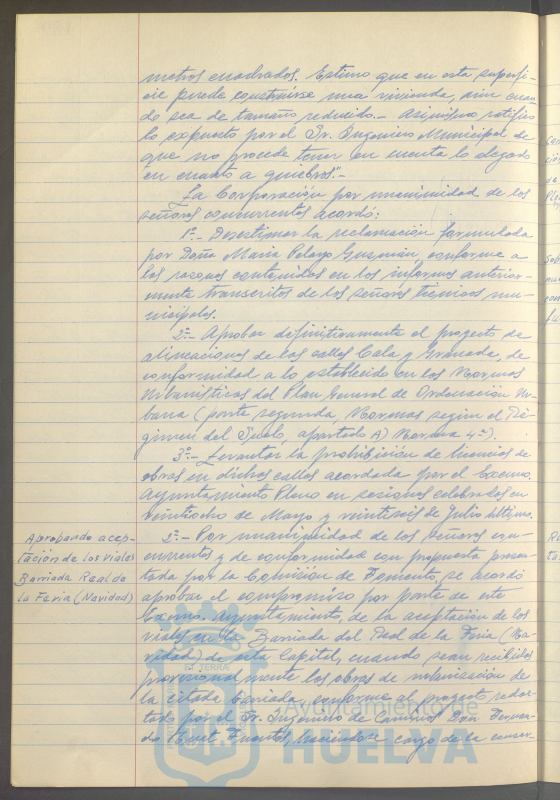 metros cuadrados. Estimo que en esta superfi-
cie puede construirse una vivienda, aun cuan-
do sea de tamaño reducido.- Asimismo ratifico
lo expuesto por el Sr. Ingeniero Municipal de
que no procede tener en cuenta lo alegado
en cuanto a quiebros"-
La Corporación por unanimidad de los
señores concurrentes acordó:
1º.- Desestimar la reclamación formulada
por Doña María Pelayo Guzmán, conforme a
las razones contenidas en los informes anterior-
mente transcritos de los señores técnicos mu-
nicipales.
2º.- Aprobar definitivamente el proyecto de
alineaciones de las calles Cala y Granada, de
conformidad a lo establecido en las Normas
Urbanísticas del Plan General de Ordenación Ur-
bana (parte segunda, Normas según el Ré-
gimen del Suelo, apartado A) Norma 4ª).
3º.- Levantar la prohibición de licencias de
obras en dichas calles acordada por el Excmo.
Ayuntamiento Pleno en sesiones celebradas en
veintiocho de Mayo y veintiseis de Julio último.
Aprobando acep-
tación de los viales
Barriada Real de
la Feria (Navidad)
2º.- Por unanimidad de los señores con-
currentes y de conformidad con propuesta presen-
tada por la Comisión de Fomento, se acordó
aprobar el compromiso por parte de este
Excmo. Ayuntamiento, de la aceptación de los
viales en la Barriada del Real de la Feria (Na-
vidad) de esta Capital, cuando sean recibidas
provisionalmente las obras de urbanización de
la citada barriada, conforme al proyecto redac-
tado por el Sr. Ingeniero de Caminos Don Fernan-
do Fuentes, haciéndose cargo de la conser-
Ayuntamiento de
HUELVA